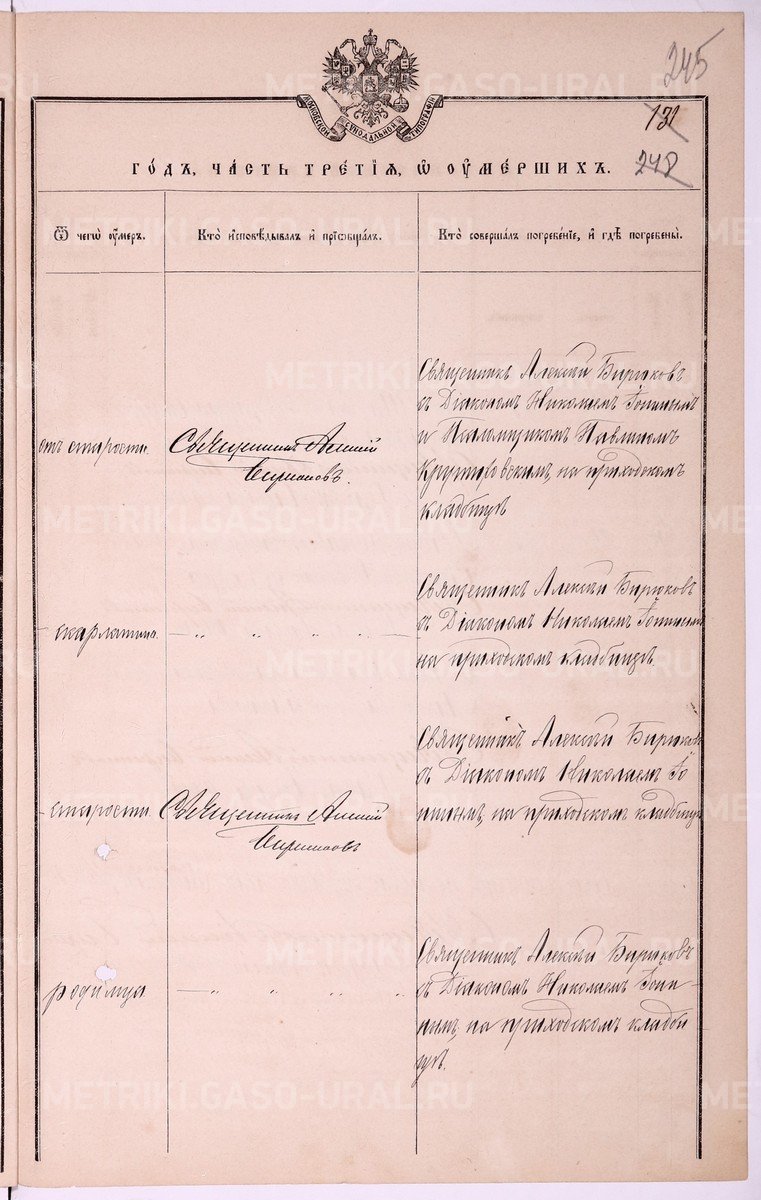 245
131
248
МОСКОВСКОЙ СѴНОДАЛЬНОЙ ТИПОГРАФІИ
ГО́ДЪ, ЧА́СТЬ ТРЕ́ТІѦ, Ѽ ОУ҆МЕ́РШИХЪ.
Ѿ чегѡ̀ ᲂу҆́меръ.
Кто̀ и҆сповѣ́дывалъ и҆ прїѡбща́лъ.
Кто̀ соверша́лъ погребе́нїе, и҆ гдѣ̀ погребены̀.
отъ старости.
Священникъ Алексій
Бирюковъ.
Священникъ Алексѣй Бирюковъ
съ Діакономъ Николаемъ
и Псаломщикомъ Павлиномъ
на приходскомъ
кладбищѣ
скарлатина.
— „ „ „ „ —
Священникъ Алексѣй Бирюковъ
съ Діакономъ Николаемъ
на приходскомъ кладбищѣ.
старости.
Священникъ Алексій
Бирюковъ
Священникъ Алексѣй Бирюковъ
съ Діакономъ Николаемъ
на приходскомъ кладбищѣ
родимца.
— „ „ „ „
Священникъ Алексѣй Бирюковъ
съ Діакономъ Николаемъ
на приходскомъ кладби
щѣ.
METRIKI.GASO-URAL.RU